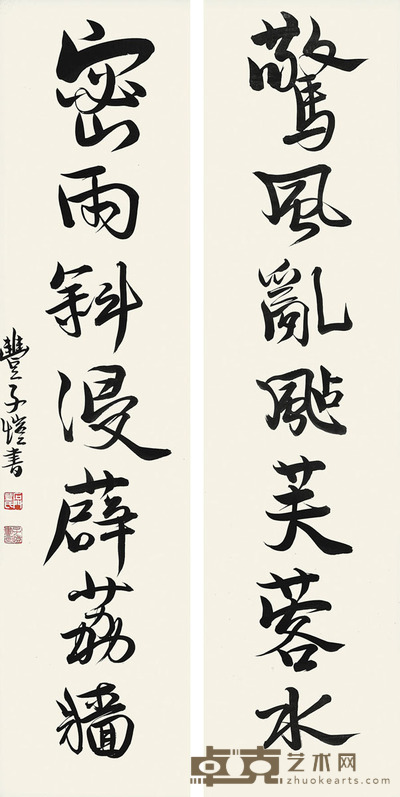 驚風亂颭芙蓉水
密雨斜侵薜荔牆
豐子愷書
卓克艺术网
zhuokearts.com